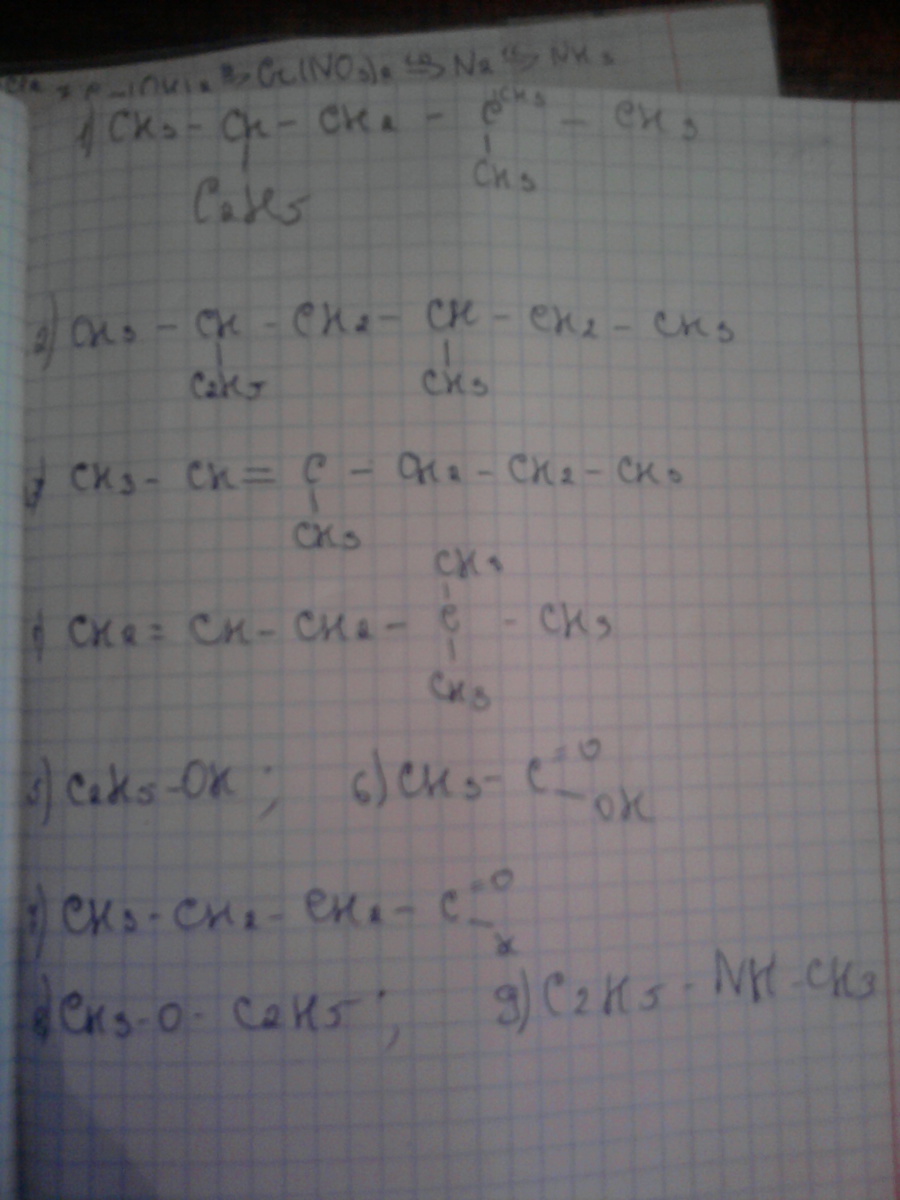 (NO3)2 ⇒ N2 ⇒ NH3
1) CH3 - CH - CH2 - C - CH3
CH3
C2H5
CH3
2) CH3 - CH - CH2 - CH - CH2 - CH3
C2H5
CH3
CH3 - CH = C - CH2 - CH2 - CH3
CH3
CH3
CH2 = CH - CH2 - C - CH3
CH3
5) C2H5 - OH ; 6) CH3 - C = O
- OH
7) CH3 - CH2 - CH2 - C = O
- H
8) CH3 - O - C2H5 ; 9) C2H5 - NH - CH3